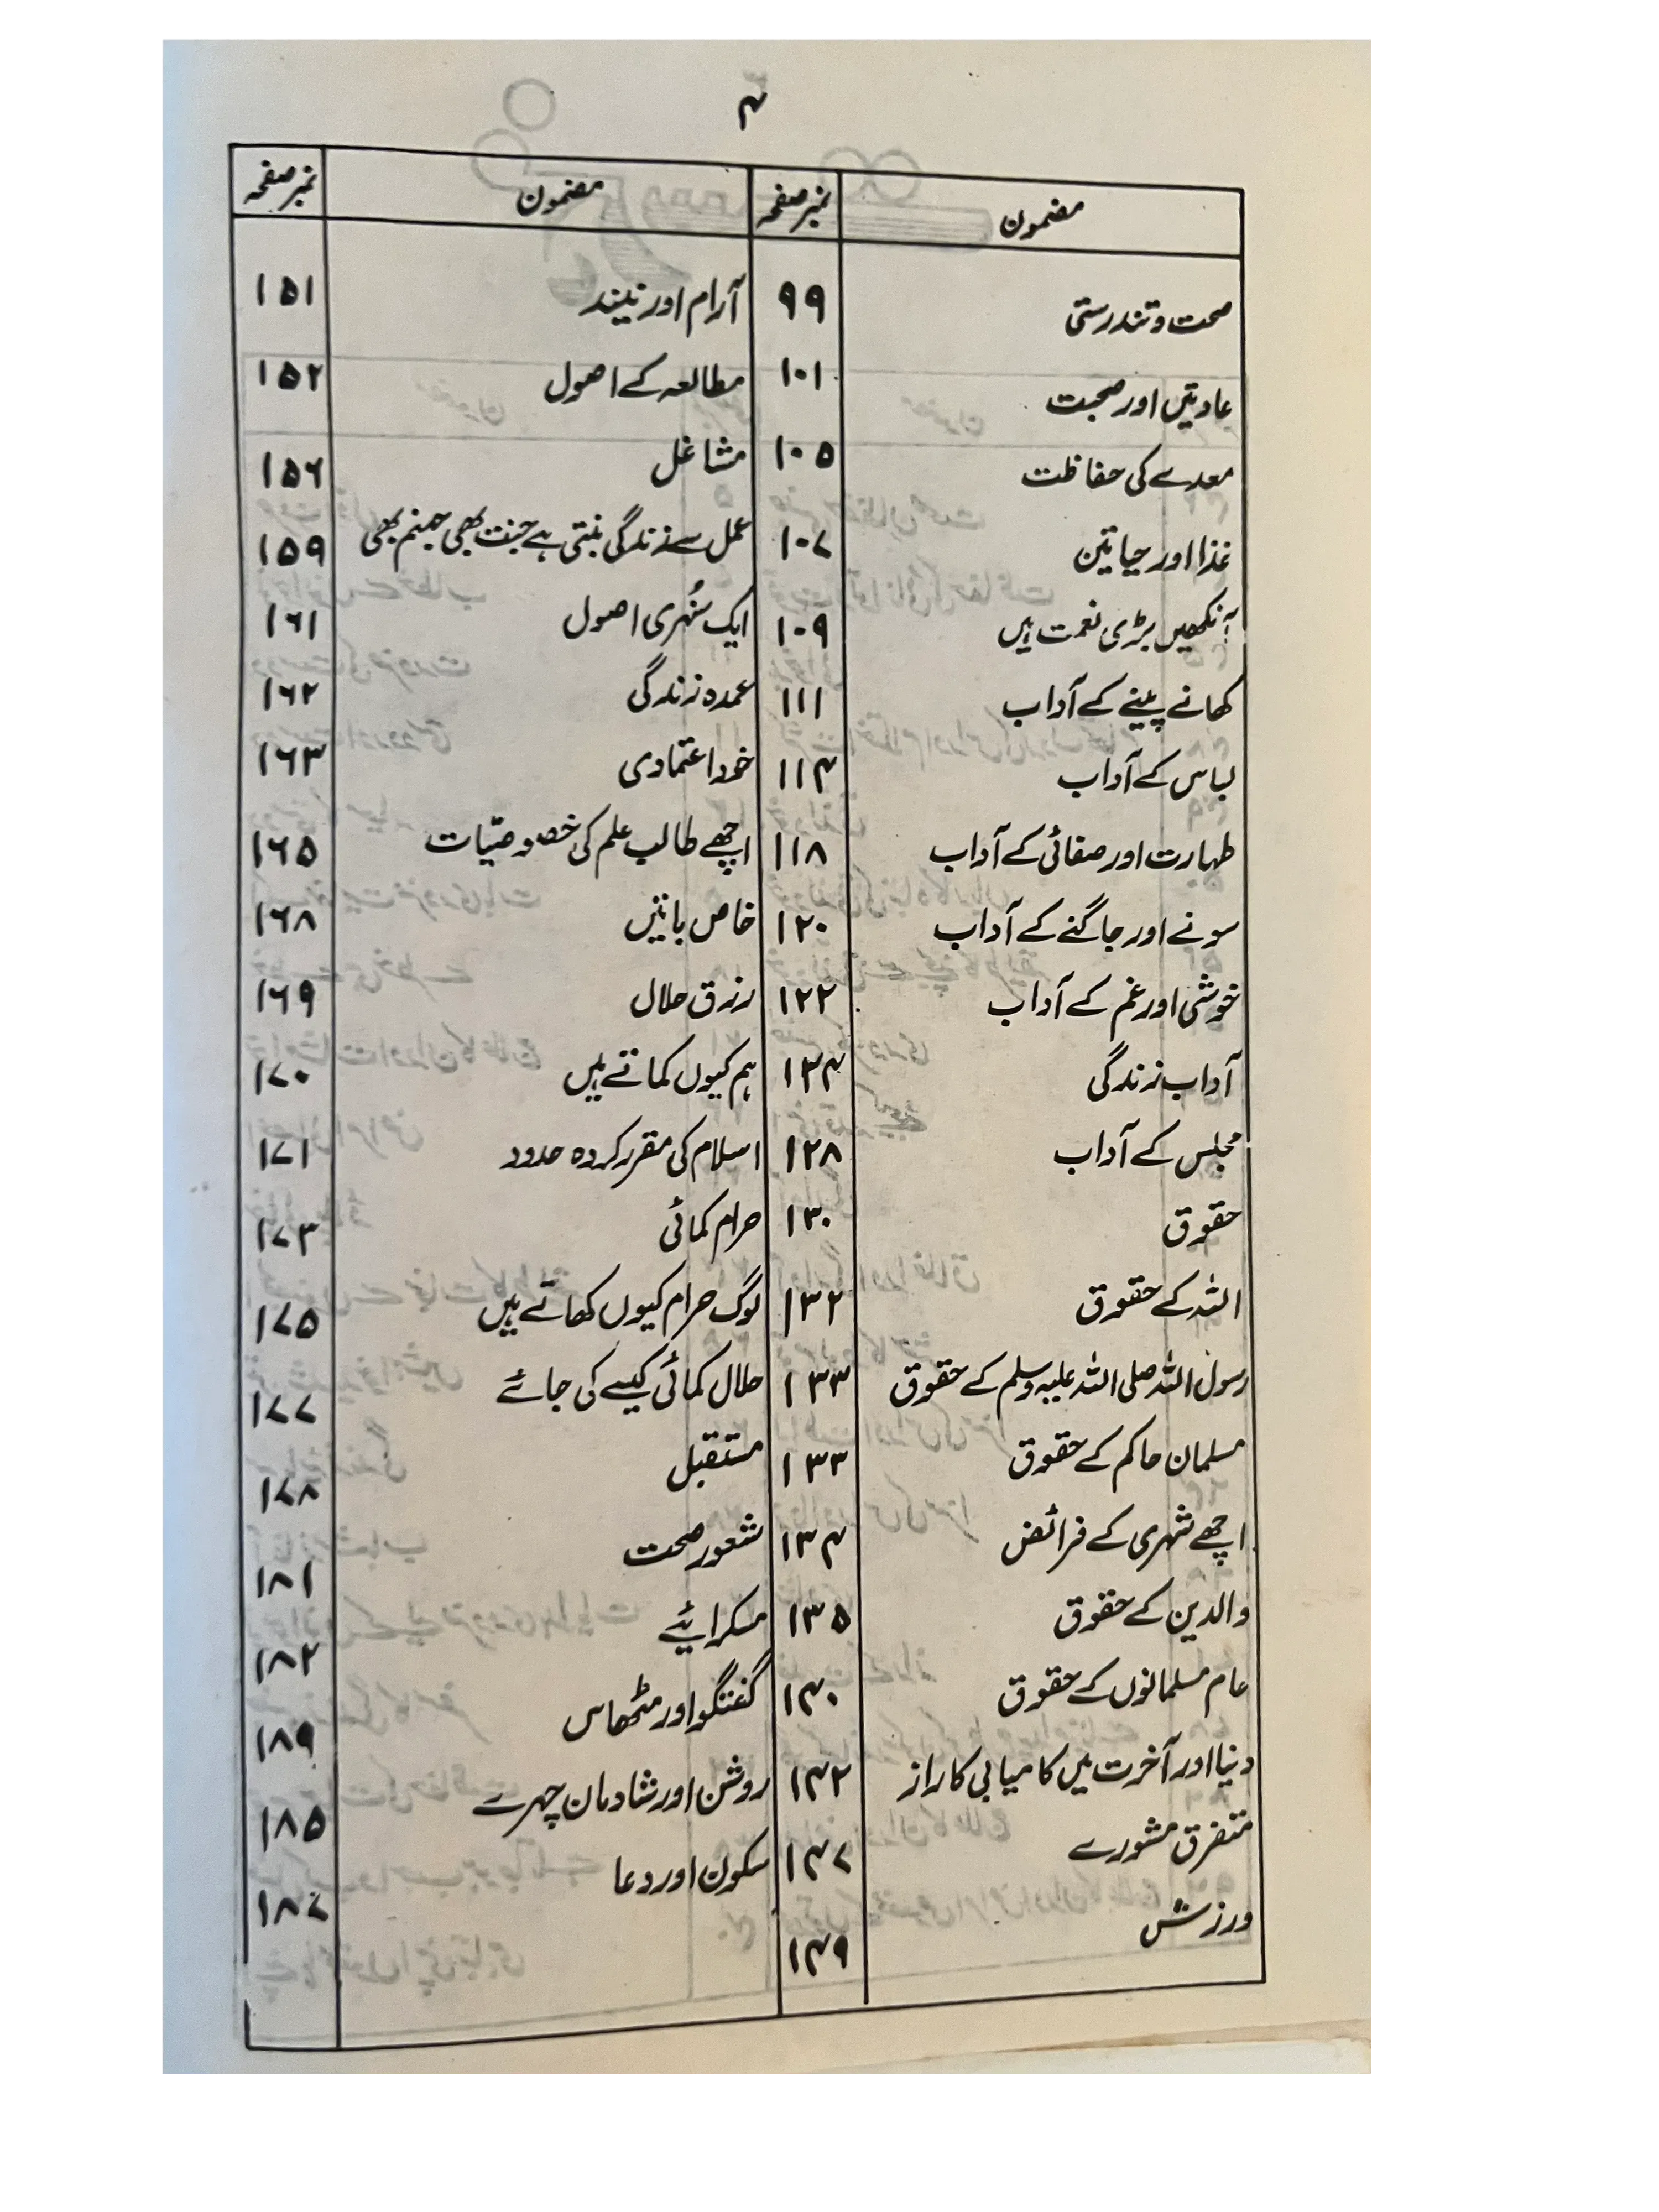 ۴
مضمون نمبر صفحہ مضمون نمبر صفحہ
صحت و تندرستی ۹۹ آرام اور نیند ۱۵۱
عادتیں اور صحبت ۱۰۱ مطالعہ کے اصول ۱۵۲
معدے کی حفاظت ۱۰۵ مشاغل ۱۵۶
غذا اور حیاتین ۱۰۷ عمل سے زندگی بنتی ہے جنت بھی جہنم بھی ۱۵۹
آنکھیں بڑی نعمت ہیں ۱۰۹ ایک سُنہری اصول ۱۶۱
کھانے پینے کے آداب ۱۱۱ عمدہ زندگی ۱۶۲
لباس کے آداب ۱۱۴ خود اعتمادی ۱۶۳
طہارت اور صفائی کے آداب ۱۱۸ اچھے طالب علم کی خصوصیّات ۱۶۵
سونے اور جاگنے کے آداب ۱۲۰ خاص باتیں ۱۶۸
خوشی اور غم کے آداب ۱۲۲ رزق حلال ۱۶۹
آداب زندگی ۱۲۴ ہم کیوں کماتے ہیں ۱۷۰
مجلس کے آداب ۱۲۸ اسلام کی مقرر کردہ حدود ۱۷۱
حقوق ۱۳۰ حرام کمائی ۱۷۳
اللہ کے حقوق ۱۳۲ لوگ حرام کیوں کھاتے ہیں ۱۷۵
رسول اللہ صلی اللہ علیہ وسلم کے حقوق ۱۳۳ حلال کمائی کیسے کی جائے ۱۷۷
مسلمان حاکم کے حقوق ۱۳۳ مستقبل ۱۷۸
اچھے شہری کے فرائض ۱۳۴ شعور صحت ۱۸۱
والدین کے حقوق ۱۳۵ مسکرائیے ۱۸۲
عام مسلمانوں کے حقوق ۱۴۰ گفتگو اور مٹھاس ۱۸۹
دنیا اور آخرت میں کامیابی کا راز ۱۴۲ روشن اور شادمان چہرے ۱۸۵
متفرق مشورے ۱۴۷ سکون اور دعا ۱۸۷
ورزش ۱۴۹